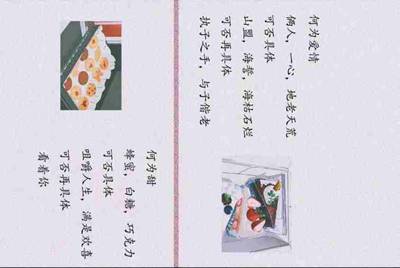 何为爱情
俩人，一心，地老天荒
可否具体
山盟，海誓，海枯石烂
可否再具体
执子之手，与子偕老
何为甜
蜂蜜，白糖，巧克力
可否具体
咀嚼人生，满是欢喜
可否再具体
看看你